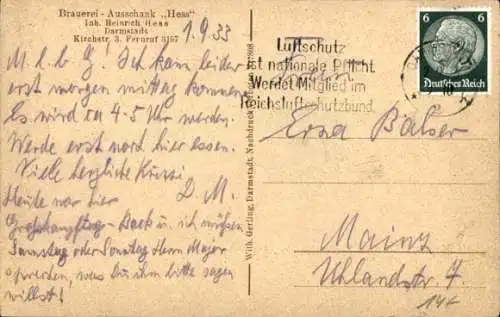 Brauerei - Ausschank „Hess"
Inh. Heinrich Hess
Darmstadt
Kirchstr. 3, Fernruf 3157
1.9.33
M. l. b. G.! Ich kann leider
erst morgen mittag kommen
Es wird ca 4-5 Uhr werden.
Werde erst noch hier essen.
Viele herzliche Küsse
D. M.
Heute war hier
Großkampftag - u. ich müssen
Samstag oder Sonntag Herrn Major
sprechen, was du ihm bitte sagen
willst!
Wilh. Gerling, Darmstadt, Nachdruck
Luftschutz
ist nationale Pflicht
Werdet Mitglied im
Reichsluftschutzbund
6 6
Deutsches Reich
Erna Balser
Mainz
Uhlandstr. 7.
14F